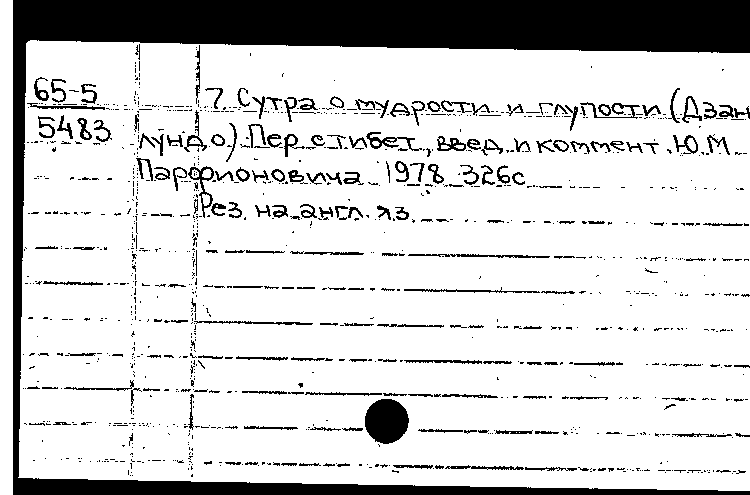 65-5
7. Сутра о мудрости и глупости (Дзан
5483
лундо) Пер с тибет., введ. и коммент. Ю.М
Парфионовича 1978 326с
Рез. на англ. яз.